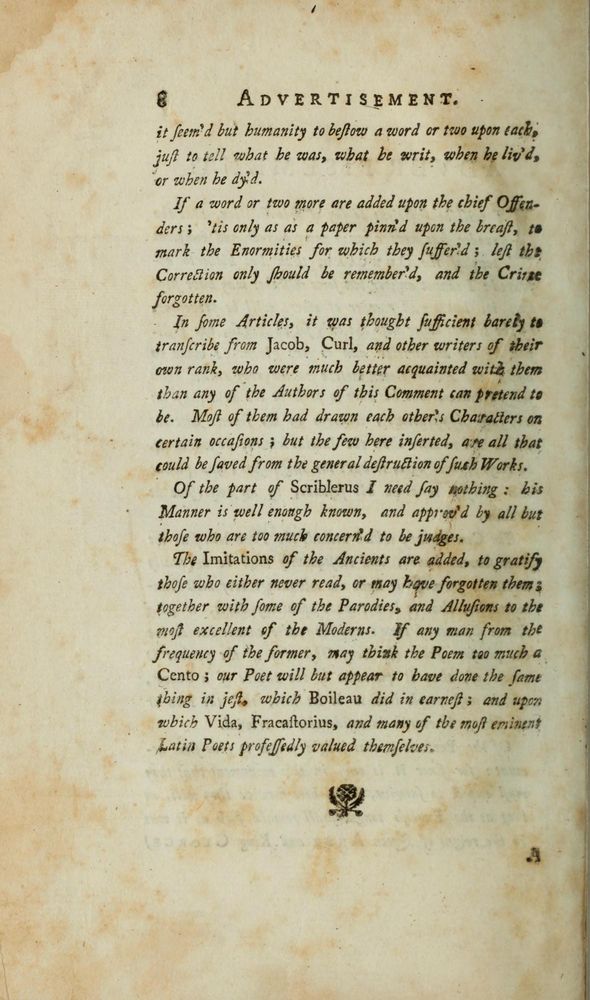 8 ADVERTISEMENT.
it ſeem'd but humanity to beſtow a word or two upon each,
juſt to tell what he was, what he writ, when he liv'd,
or when he dy'd.
If a word or two more are added upon the chief Offen-
ders; 'tis only as as a paper pinn'd upon the breaſt, to
mark the Enormities for which they ſuffer'd; leſt the
Correction only ſhould be remember'd, and the Crime
forgotten.
In ſome Articles, it was thought ſufficient barely to
tranſcribe from Jacob, Curl, and other writers of their
own rank, who were much better acquainted with them
than any of the Authors of this Comment can pretend to
be. Moſt of them had drawn each other's Characters on
certain occaſions; but the few here inſerted, are all that
could be ſaved from the general deſtruction of ſuch Works.
Of the part of Scriblerus I need ſay nothing: his
Manner is well enough known, and approv'd by all but
thoſe who are too much concern'd to be judges.
The Imitations of the Ancients are added, to gratify
thoſe who either never read, or may have forgotten them;
together with ſome of the Parodies, and Alluſions to the
moſt excellent of the Moderns. If any man from the
frequency of the former, may think the Poem too much a
Cento; our Poet will but appear to have done the ſame
thing in jeſt, which Boileau did in earneſt; and upon
which Vida, Fracaſtorius, and many of the moſt eminent
Latin Poets profeſſedly valued themſelves.
A